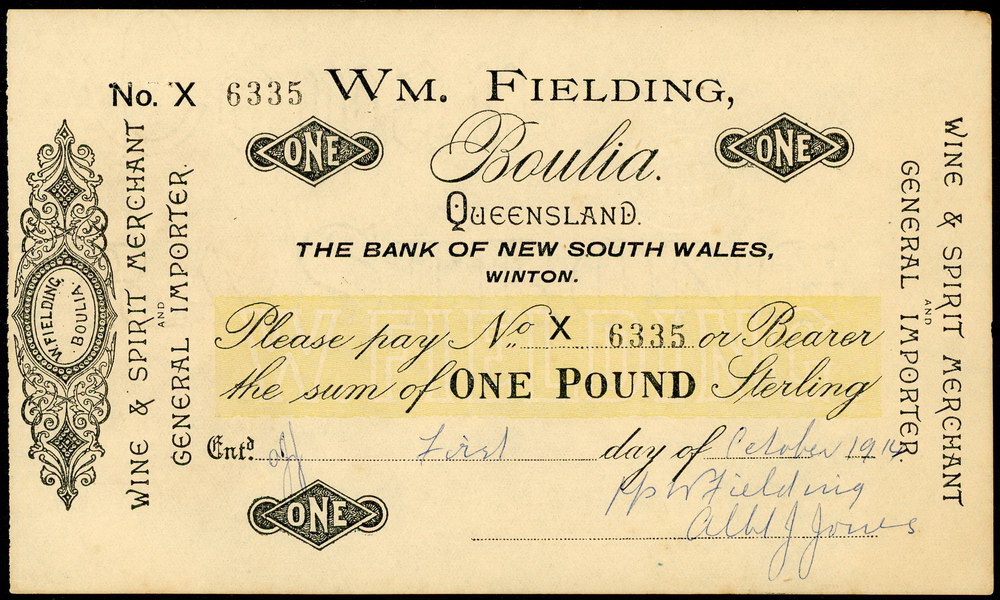 No. X 6335 WM. FIELDING,
ONE
Boulia.
ONE
QUEENSLAND.
THE BANK OF NEW SOUTH WALES,
WINTON.
W FIELDING
Please pay No. X 6335 or Bearer
the sum of ONE POUND Sterling
Entd First day of October 1914
pp W Fielding
Albt J Jones
ONE
W. FIELDING,
BOULIA.
WINE & SPIRIT MERCHANT
AND
GENERAL IMPORTER.
WINE & SPIRIT MERCHANT
AND
GENERAL IMPORTER.